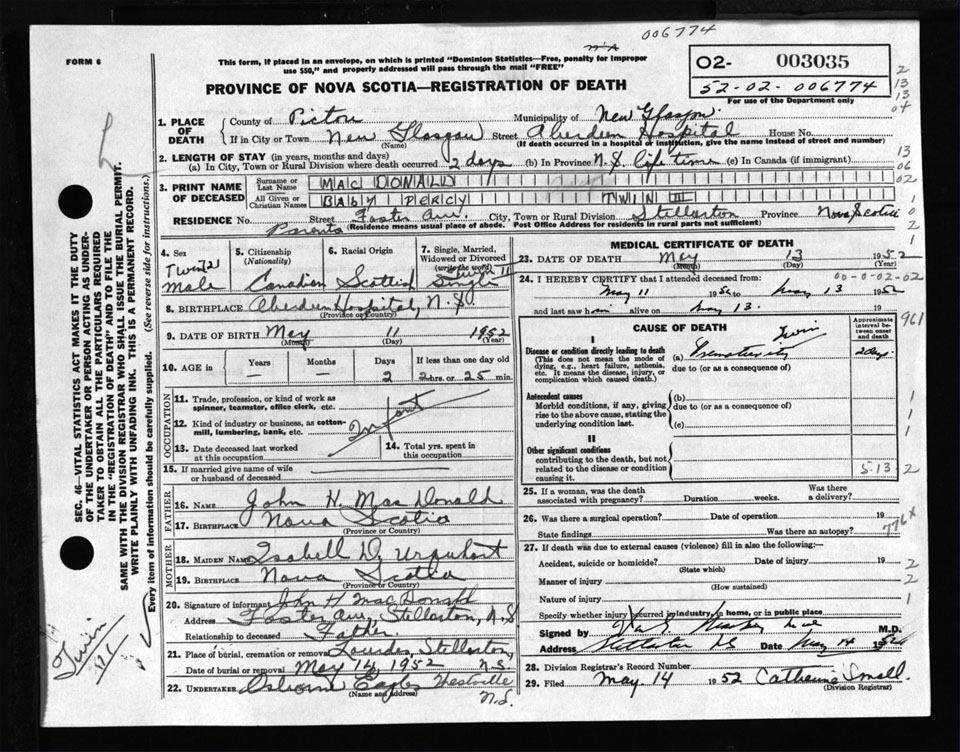 006774
FORM 6
This form, if placed in an envelope, on which is printed "Dominion Statistics—Free, penalty for improper
use $50," and properly addressed will pass through the mail "FREE"
N'A
02- 003035
52-02-006774
For use of the Department only
PROVINCE OF NOVA SCOTIA—REGISTRATION OF DEATH
2
13
13
04
13
06
02
1
0
2
1
1. PLACE OF DEATH
County of Pictou Municipality of New Glasgow.
If in City or Town New Glasgow (Name) Street Aberdeen Hospital House No.
(If death occurred in a hospital or institution, give the name instead of street and number)
2. LENGTH OF STAY (in years, months and days)
(a) In City, Town or Rural Division where death occurred 2 days (b) In Province N.S. life time (c) In Canada (if immigrant)
3. PRINT NAME OF DECEASED
Surname or Last Name MAC DONALD
All Given or Christian Names BABY PERCY TWIN II
RESIDENCE No. Street Foster Ave. City, Town or Rural Division Stellarton Province Nova Scotia
Parents (Residence means usual place of abode. Post Office Address for residents in rural parts not sufficient)
4. Sex
Twin (2)
Male
5. Citizenship
(Nationality)
Canadian
6. Racial Origin
Scottish
7. Single, Married,
Widowed or Divorced
(write the word)
Single
8. BIRTHPLACE Aberdeen Hospital, N.S.
(Province or Country)
9. DATE OF BIRTH May 11 1952
(Month) (Day) (Year)
10. AGE in
Years Months Days If less than one day old
— — 2 2 hrs. or 25 min.
OCCUPATION
11. Trade, profession, or kind of work as
spinner, teamster, office clerk, etc.
12. Kind of industry or business, as cotton-
mill, lumbering, bank, etc.
Infant
13. Date deceased last worked
at this occupation
14. Total yrs. spent in
this occupation
15. If married give name of wife
or husband of deceased
FATHER
16. NAME John H. MacDonald
17. BIRTHPLACE Nova Scotia
(Province or Country)
MOTHER
18. MAIDEN NAME Isabell D. Urquhart
19. BIRTHPLACE Nova Scotia
(Province or Country)
20. Signature of informant John H MacDonald
Address Foster Ave, Stellarton, N.S
Relationship to deceased Father.
21. Place of burial, cremation or removal Lourdes, Stellarton,
Date of burial or removal May 14, 1952 N.S.
22. UNDERTAKER Osborne Eagles Westville
(Name and address) N.S.
MEDICAL CERTIFICATE OF DEATH
23. DATE OF DEATH May 13 1952
(Month) (Day) (Year)
00-0-02-02
24. I HEREBY CERTIFY that I attended deceased from:
May 11 1952 to May 13 1952
and last saw him alive on May 13 19
CAUSE OF DEATH
Approximate interval between onset and death
961
I
Disease or condition directly leading to death
(This does not mean the mode of
dying, e.g., heart failure, asthenia,
etc. It means the disease, injury, or
complication which caused death.)
(a) Prematurity Twin 2 days
due to (or as a consequence of)
Antecedent causes
Morbid conditions, if any, giving
rise to the above cause, stating the
underlying condition last.
(b)
due to (or as a consequence of)
(c)
II
Other significant conditions
contributing to the death, but not
related to the disease or condition
causing it.
5.13
2
25. If a woman, was the death
associated with pregnancy? Duration weeks. Was there a delivery?
26. Was there a surgical operation? Date of operation 19
State findings Was there an autopsy?
776 x
27. If death was due to external causes (violence) fill in also the following:—
Accident, suicide or homicide? Date of injury 19
(State which)
Manner of injury
(How sustained)
Nature of injury
Specify whether injury occurred in industry, in home, or in public place
Signed by M.D.
Address Date May 14 1952
28. Division Registrar's Record Number
29. Filed May. 14 1952 Catherine Small.
(Division Registrar)
SEC. 46—VITAL STATISTICS ACT MAKES IT THE DUTY
OF THE UNDERTAKER OR PERSON ACTING AS UNDER-
TAKER TO OBTAIN ALL THE PARTICULARS REQUIRED
IN THE "REGISTRATION OF DEATH" AND TO FILE THE
SAME WITH THE DIVISION REGISTRAR WHO SHALL ISSUE THE BURIAL PERMIT.
WRITE PLAINLY WITH UNFADING INK. THIS IS A PERMANENT RECORD.
Every item of information should be carefully supplied. (See reverse side for instructions.)
Twin